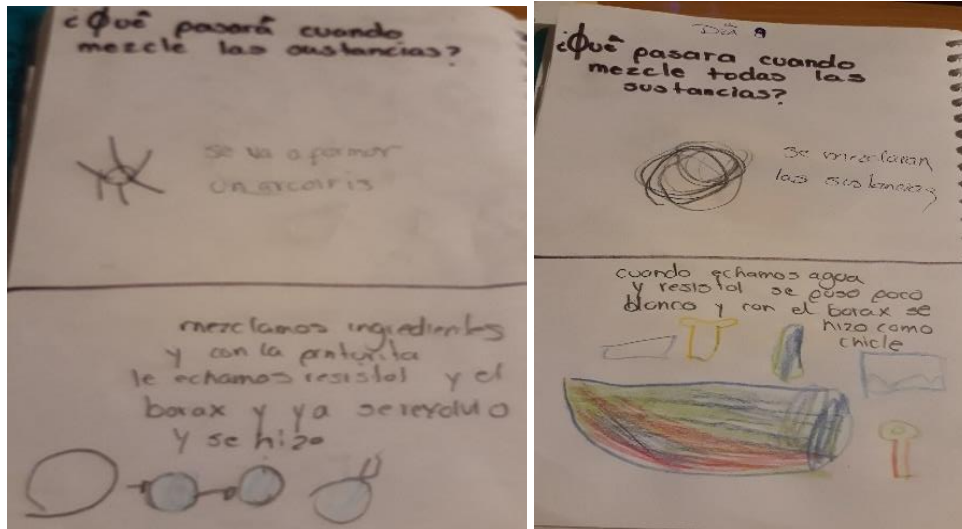 ¿Qué pasará cuando
mezcle las sustancias?
se va a formar
un arcoiris
mezclamos ingredientes
y con la pinturita
le echamos resistol y el
borax y ya se revolvio
y se hizo
Día 9
¿Qué pasara cuando
mezcle todas las
sustancias?
se mezclaran
las sustancias
cuando echamos agua
y resistol se puso poco
blanco y con el borax se
hizo como
chicle